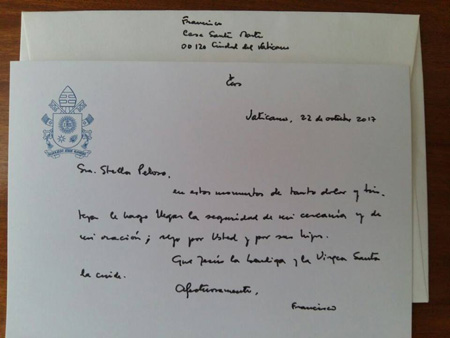 Francisco
Casa Santa Marta
00120 Ciudad del Vaticano
Vaticano, 22 de octubre 2017
Sra. Stella Peloso,
en estos momentos de tanto dolor y tris
teza le hago llegar la seguridad de mi cercanía y de
mi oración; rezo por Usted y por sus hijos.
Que Jesús la bendiga y la Virgen Santa
la cuide.
Afectuosamente,
Francisco